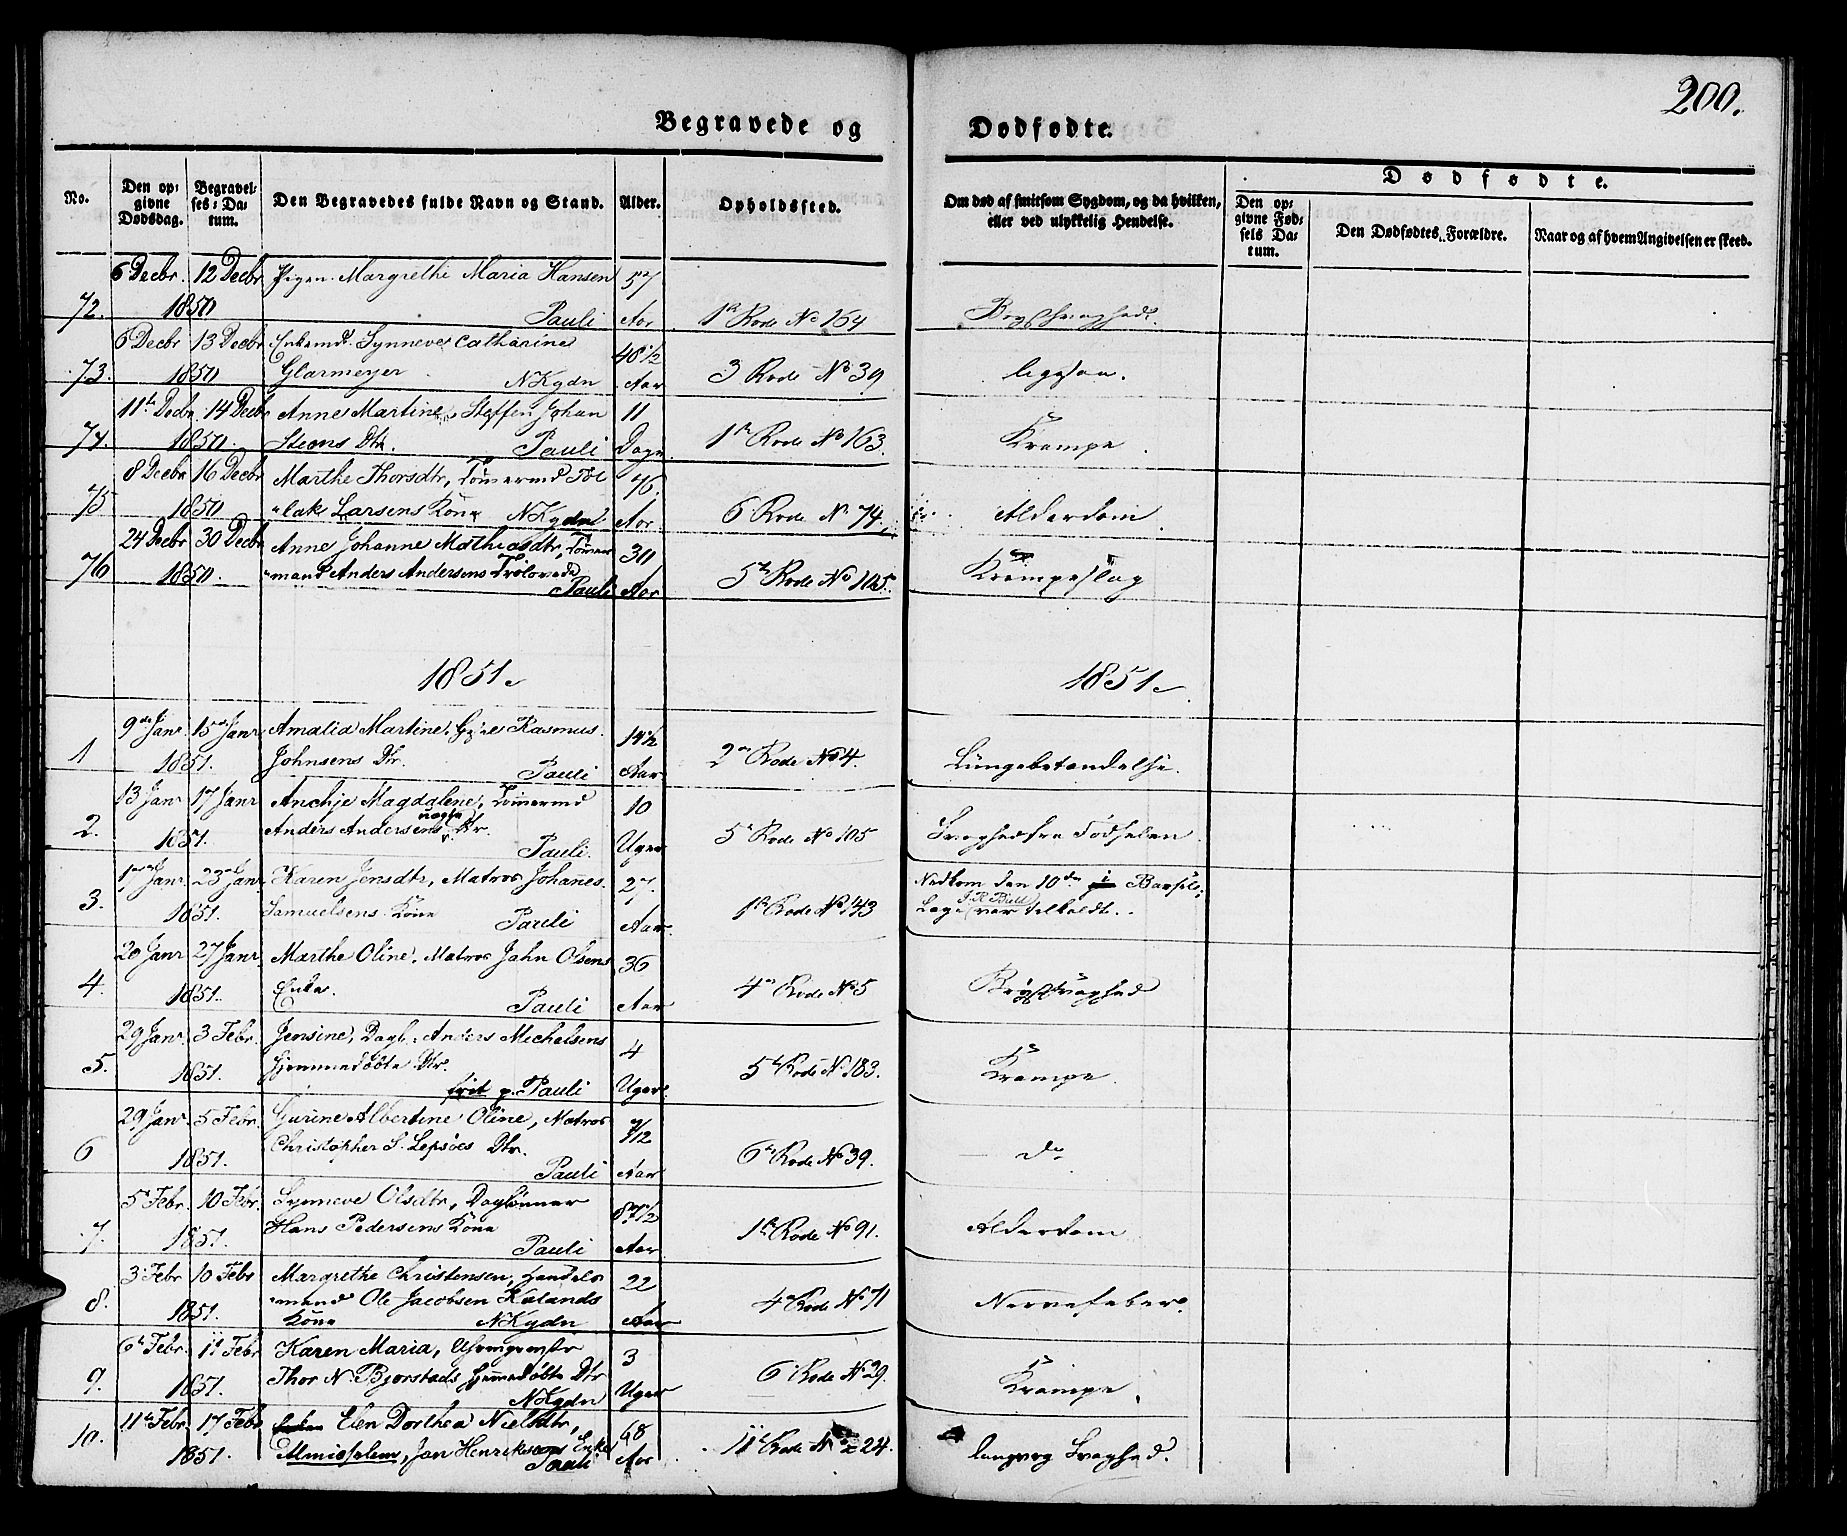 200.
Begravede og Dødfødte.
No.
Den opgivne Dødsdag.
Begravelses-Datum.
Den Begravedes fulde Navn og Stand.
Alder.
Opholdssted.
Om død af smitsom Sygdom, og da hvilken, eller ved ulykkelig Hendelse.
Dødfødte.
Den opgivne Fødsels Datum.
Den Dødfødtes Forældre.
Naar og af hvem Angivelsen er skeed.
6 Decbr. 12 Decbr Pigen Margrethe Maria Hansen 57
72. 1850 Pauli Aar 1ste Rode No 154 Brystsvaghed.
6 Decbr 13 Decbr Enkemd. Synneve Catharine 48 1/2
73. 1850 Glarmeyer N Kgdn Aar 3 Rode No 39 ligesaa.
11te Decbr. 14 Decbr Anne Martine, Steffen Johan 11
74. 1850. Steens Dtr. Pauli Dage 1ste Rode No 163. Krampe.
8 Decbr 16 Decbr Marthe Thorsdtr, Tømermd Tol 76.
75 1850 lak Larsens Kone N Kgdn Aar 6 Rode No 74. Alderdom.
24 Decbr 30 Decbr Anne Johanne Mathiasdtr, Tømer 30
76 1850. mand Anders Andersens Trolovede Pauli Aar 5te Rode No 105. Krampeslag
1851. 1851.
9de Janr. 15de Janr Amalia Martine, Rasmus 14 1/2
1 1851. Johnsens Dtr. Pauli Aar 2den Rode No 4. Lungebetændelse.
13 Janr 17 Janr Anchje Magdalene, Tømermd 10
2. 1851. Anders Andersens uægte Dtr. Pauli. Uger 5te Rode No 105 Svaghed fra Fødselen
1ste Janr. 23de Janr. Karen Jensdtr, Matros Johannes 27. Nedkom den 10de i Barsels
3. 1851. Samuelsens Kone Pauli Aar. 1ste Rode No 143 Lage (J. R. Bull var tilkaldt.
20 Janr 27 Janr. Marthe Oline, Matros Jahn Olsens 36
4. 1851. Enke. Pauli Aar 4de Rode No 5 Brystsvaghed
29 Janr. 3 Febr. Jensine, Dagl. Anders Michelsens 4
5. 1851. hjemmedøbte Dtr. frit p. Pauli Uger. 5te Rode No 183. Krampe.
29 Janr 5 Febr. Gurine Albertine Oline, Matros 9/12
6 1851. Christopher S. Lepsøes Dtr. Pauli Aar 6te Rode No 39. do
5 Febr. 10 Febr. Synneve Olsdtr, Daglønner 87 1/2
7. 1851. Hans Pedersens Kone Pauli Aar 1ste Rode No 91. Alderdom
3 Febr 10 Febr Margrethe Christensen, Handels 22
8. 1851. mand Ole Jacobsen Kalands Kone N Kgdn Aar 4de Rode No 71 Nervefeber.
6te Febr. 11 Febr Karen Maria, 3
9. 1851. Thor N. Bjorstads hjemmedøbte Dtr N Kgdn Uger 6 Rode No 29. Krampe.
11te Febr. 17 Febr Elen Dorthea Nielsdtr, 68
10. 1851. Almisselem, Jan Henriksens Enke Pauli Aar 11te Rode No 224. langvarig Svaghed.